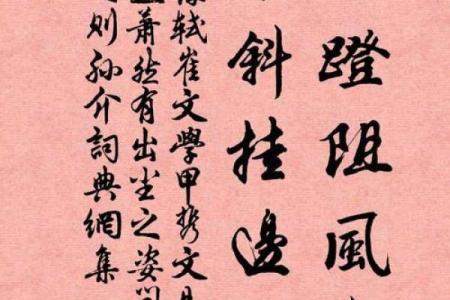 蹬阻風
斜挂邊
軾崔文學甲携文見
蕭然有出尘之姿
則孫介詞典網集